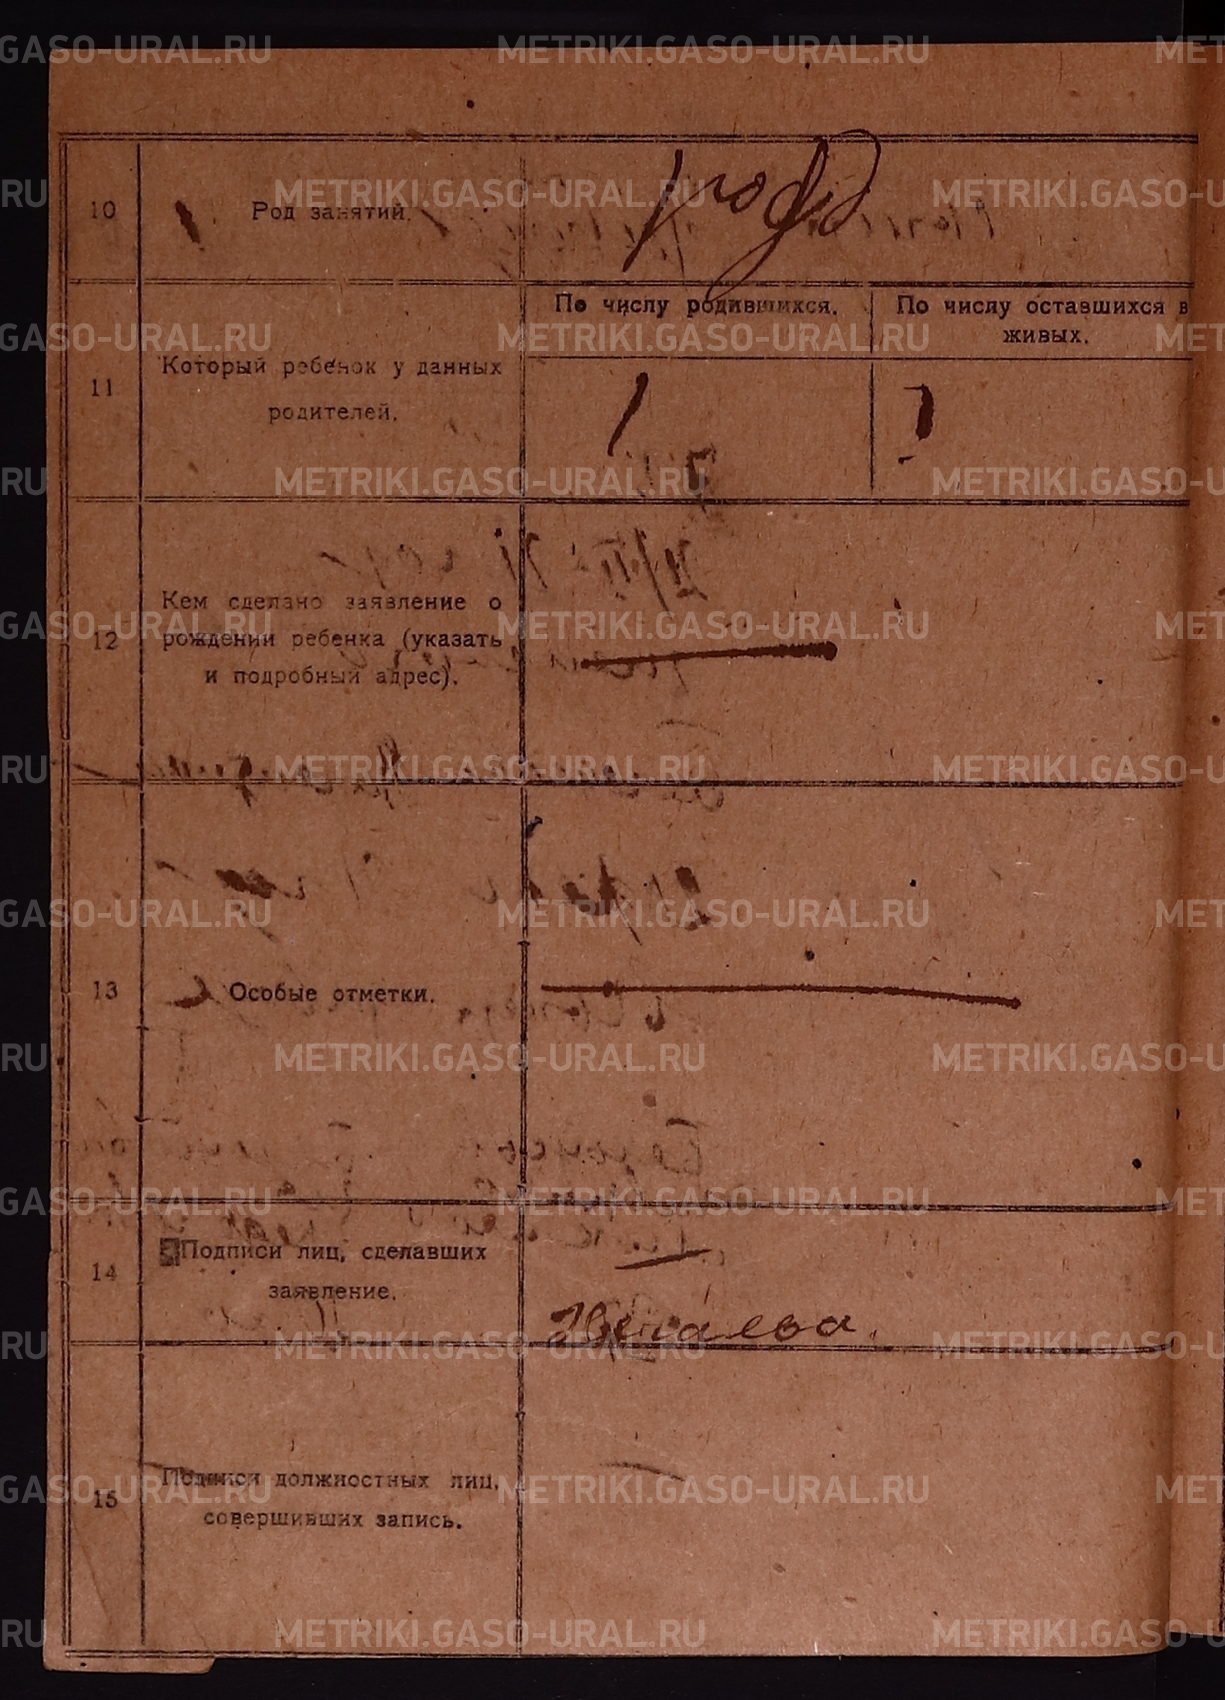 10
Род занятий.
11
Который ребенок у данных
родителей.
По числу родившихся.
По числу оставшихся в
живых.
1
1
12
Кем сделано заявление о
рождении ребенка (указать
и подробный адрес).
13
Особые отметки.
14
Подписи лиц, сделавших
заявление.
15
Подписи должностных лиц,
совершивших запись.
METRIKI.GASO-URAL.RU